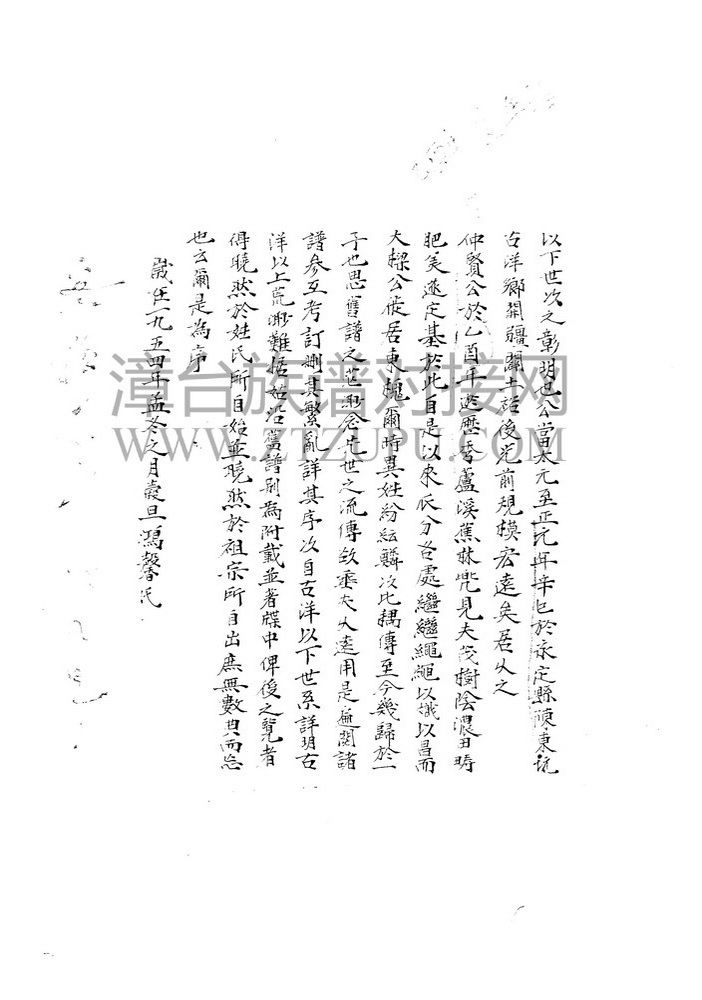 以下世次之彰明也公當大元至正元年辛巳於永定縣陳東坑
古洋鄉開疆闢土詒後光前規模宏遠矣居久之
仲賢公於乙酉年遊歷香蘆溪蕉林兜見夫茂樹陰濃田疇
肥美遂定基於此自是以來瓜分各處繼繼繩繩以熾以昌而
大樑公徙居東槐爾時異姓紛紜鱗次比耦傳至今幾歸於一
子也思舊譜之茫渺念先世之流傳欲垂久遠用是遍閱諸
譜參互考訂刪其繁亂詳其序次自古洋以下世系詳明古
洋以上荒渺難據姑沿舊譜別為附載並著牒中俾後之覽者
得曉然於姓氏所自始並曉然於祖宗所自出庶無數典而忘
也云爾是為序
歲在一九五四年孟冬之月穀旦鴻馨氏
漳台族谱对接网
WWW.ZTZUPU.COM